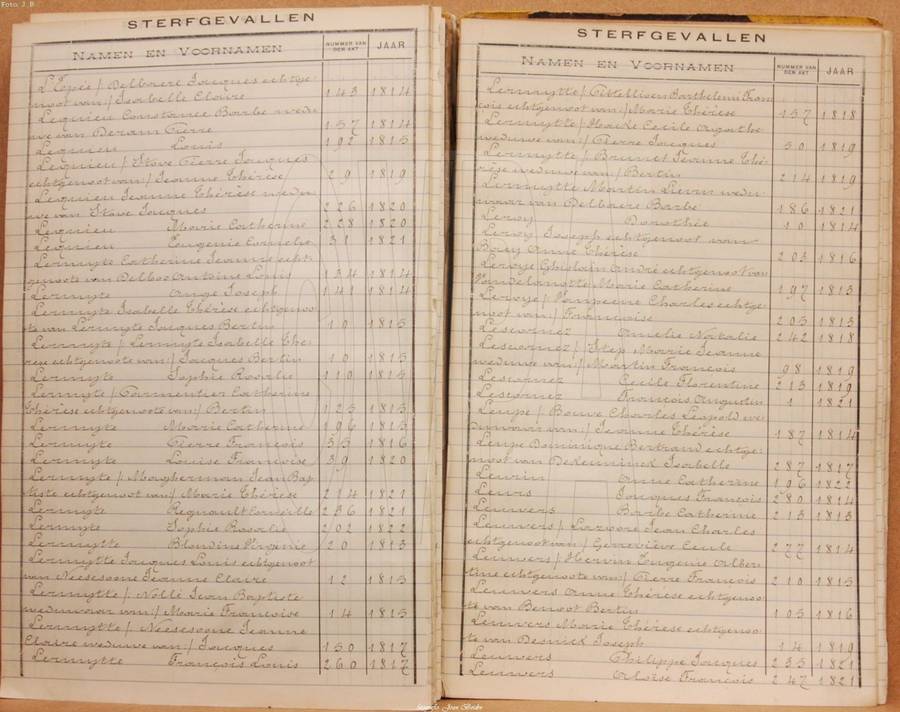 Foto: J. B
STERFGEVALLEN
NAMEN EN VOORNAMEN NUMMER VAN DEN AKT JAAR
L'Epée / Delbaere Jacques echtge-
noot van / Isabelle Claire 143 1814
Lequien Constance Barbe wedu-
we van Deram Pierre 157 1814
Lequien Louis 192 1815
Lequien / Stove Pierre Jacques
echtgenoot van / Jeanne Thérèse 29 1819
Lequien Jeanne Thérèse wedu-
we van Stove Jacques 226 1820
Lequien Marie Catherine 228 1820
Lequien Eugenie Cornelie 31 1821
Lermyte Catherine Jeanne echt-
genoote van Antoine Louis 134 1814
Lermyte Ange Joseph 141 1814
Lermyte Isabelle Thérèse echtgenoo-
te van Lermyte Jacques Bertin 10 1815
Lermyte / Lermyte Isabelle Thé-
rèse echtgenoote van / Jacques Bertin 10 1815
Lermyte Sophie Rosalie 110 1815
Lermyte / Parmentier Catherine
Thérèse echtgenoote van / Bertin 125 1815
Lermyte Marie Catherine 196 1815
Lermyte Pierre François 35 1816
Lermyte Louise Françoise 39 1820
Lermyte / Margherman Jean Bap-
tiste echtgenoot van / Marie Thérèse 214 1821
Lermyte Regnault Corneille 236 1821
Lermyte Sophie Rosalie 202 1822
Lermytte Blondine Virginie 20 1813
Lermytte Jacques Louis echtgenoot
van Neesesoone Jeanne Claire 12 1815
Lermytte / Nollé Jean Baptiste
weduwaar van / Marie Françoise 14 1815
Lermytte / Neesesoone Jeanne
Claire weduwe van / Jacques 150 1817
Lermytte François Louis 260 1817
STERFGEVALLEN
NAMEN EN VOORNAMEN NUMMER VAN DEN AKT JAAR
Lermytte / Barthelemi Fran-
cois echtgenoot van / Marie Thérèse 157 1818
Lermytte / Cecile Agathe
weduwe van / Pierre Jacques 50 1819
Lermytte / Brunet Jeanne Thé-
rèse weduwe van / Bertin 214 1819
Lermytte Martin Lievin wedu-
waar van Delbaere Barbe 186 1821
Leroy Dorothée 10 1814
Leroy Joseph echtgenoot van
Anne Thérèse 203 1816
Leroye Ghislain André echtgenoot van
Vandelanotte Marie Catherine 197 1813
Leroye / Vampeene Charles echtge-
noot van / Françoise 205 1813
Lescornez Amelie Natalie 242 1818
Lescornez / Step Marie Jeanne
weduwe van / Martin François 98 1819
Lescornez Cecile Florentine 213 1819
Lescornez François Augustin 1 1821
Leupe / Bouve Charles Leopold we-
duwaar van / Jeanne Thérèse 187 1814
Leupe Dominique Bertrand echtge-
noot van Dekeuninck Isabelle 287 1817
Leurin Anne Catherine 196 1822
Leurs Jacques François 280 1814
Leuwers Barbe Catherine 213 1813
Leuwers / Jean Charles
echtgenoot van / Geneviève Cecile 277 1814
Leuwers / Hervin Eugenie Alber-
tine echtgenoote van / Pierre François 210 1815
Leuwers Anne Thérèse echtgenoo-
te van Benoot Bertin 105 1816
Leuwers Marie Thérèse echtgenoo-
te van Desnick Joseph 14 1819
Leuwers Philippe Jacques 235 1821
Leuwers Aloïse François 247 1821